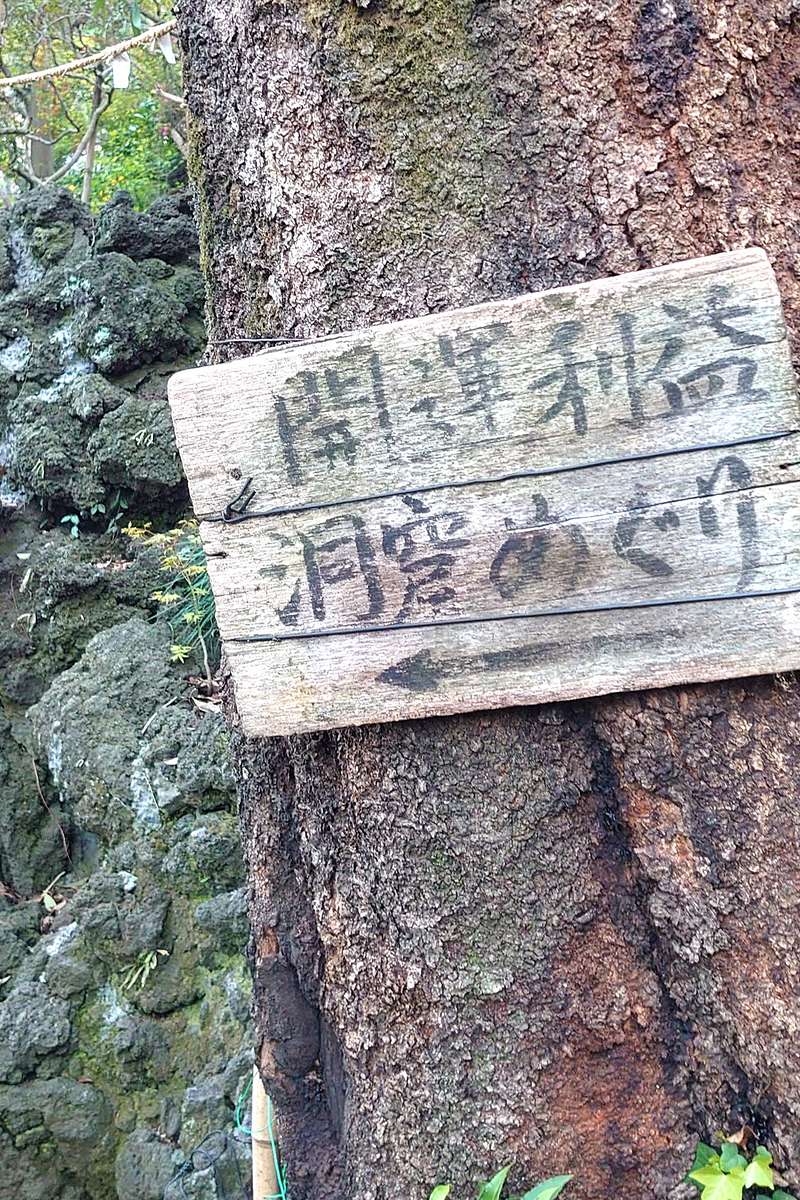 開運利益
洞窟めぐり
←